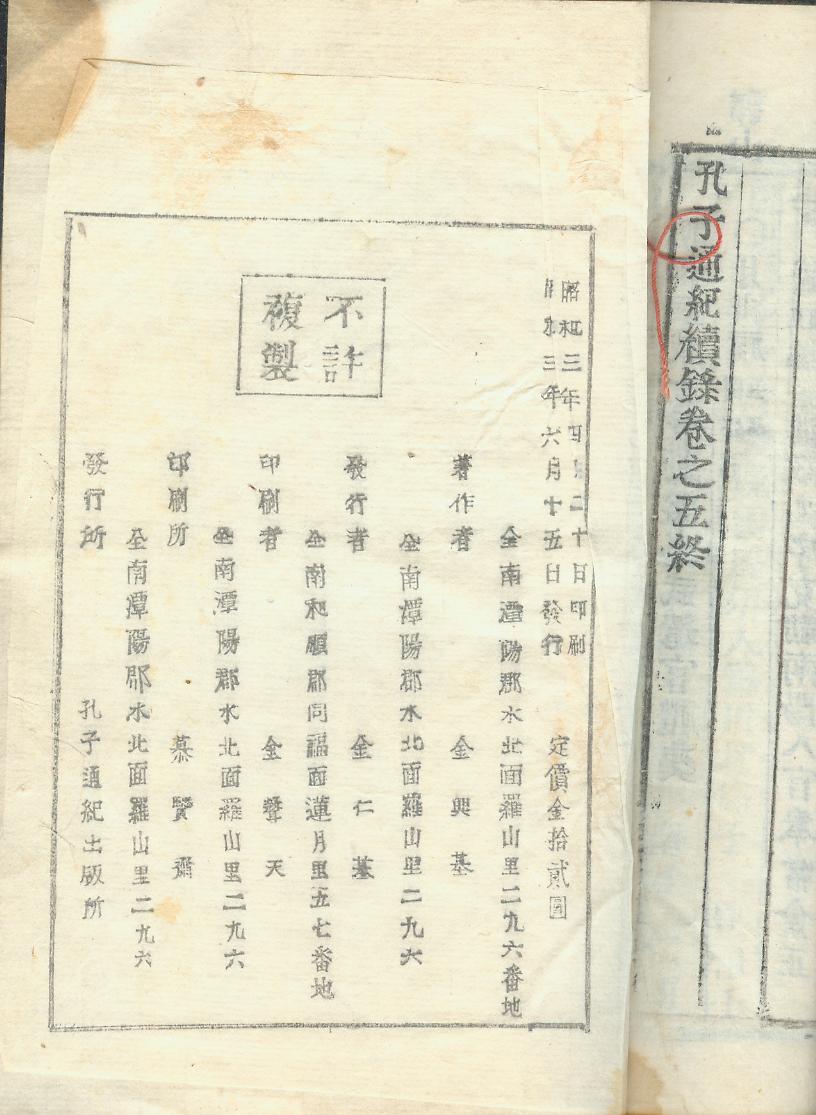 孔子通紀續錄卷之五終
昭和三年四月二十日印刷
昭和三年六月十五日發行
定價金拾貳圓
不許
複製
全南潭陽郡水北面羅山里二九六番地
著作者 金興基
全南潭陽郡水北面羅山里二九六
發行者 金仁基
全南和順郡同福面蓮月里五七番地
印刷者 金聲天
全南潭陽郡水北面羅山里二九六
印刷所 慕賢齋
全南潭陽郡水北面羅山里二九六
發行所 孔子通紀出版所